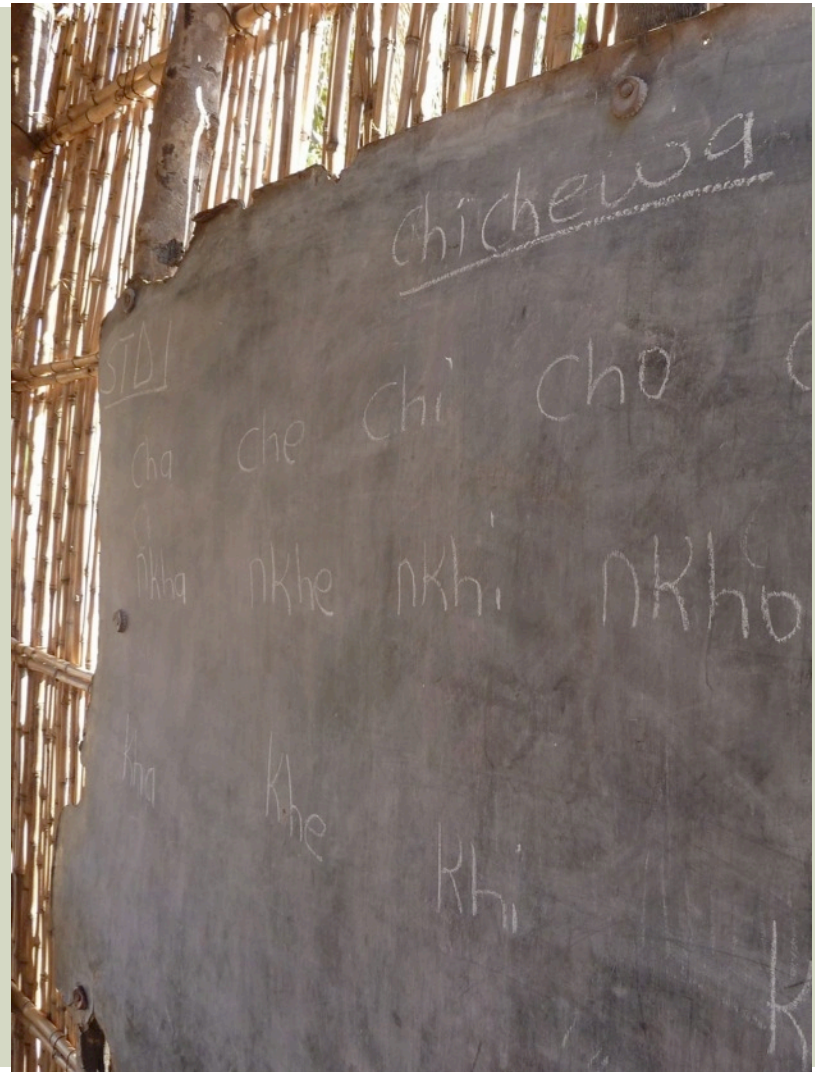 Chichewa
STD1
cha che chi cho
nkha nkhe nkhi nkho
kha khe khi